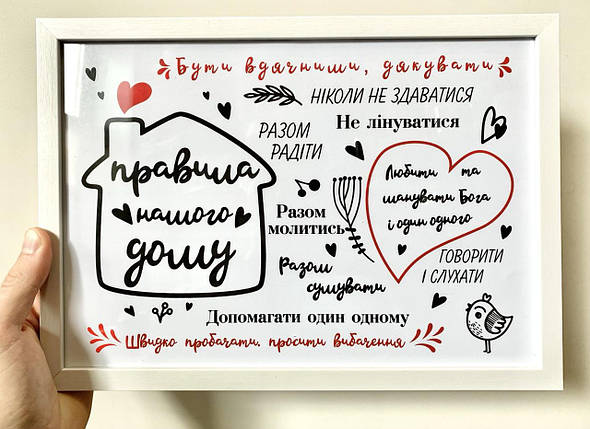 Бути вдячними, дякувати
НІКОЛИ НЕ ЗДАВАТИСЯ
Не лінуватися
РАЗОМ
РАДІТИ
правила
нашого
дому
Любити та
шанувати Бога
і один одного
Разом
молитись
Разом
сумувати
ГОВОРИТИ
І СЛУХАТИ
Допомагати один одному
Швидко пробачати. просити вибачення